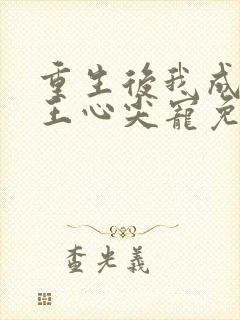 重生後我成
王心尖寵免
查光義